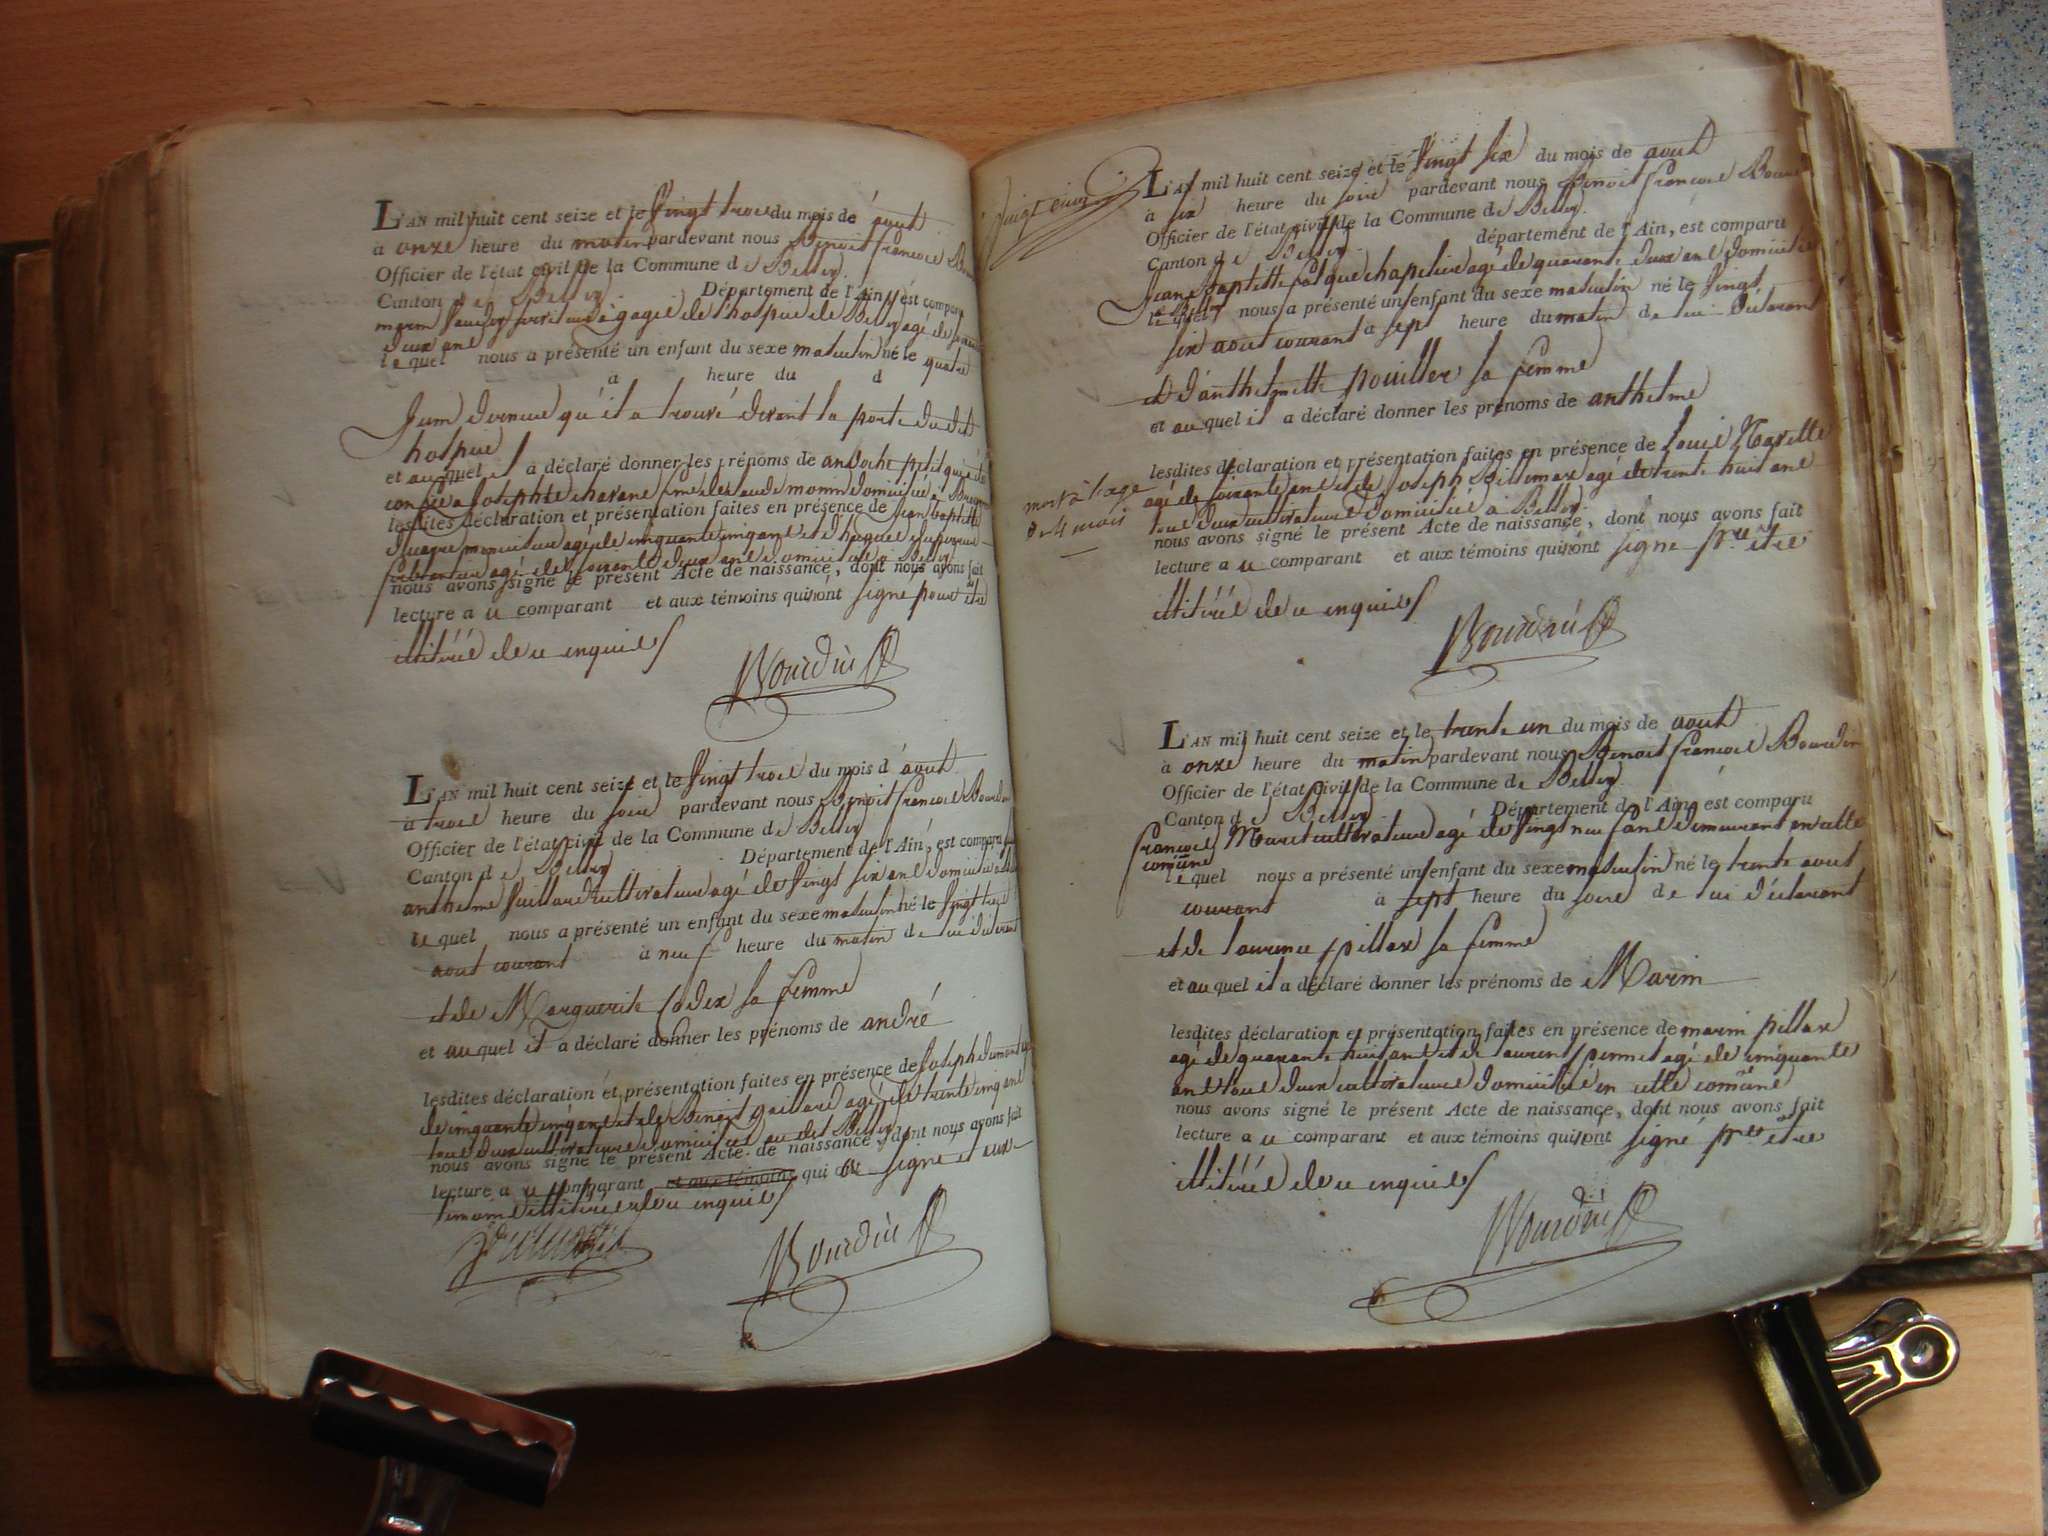 L'AN mil huit cent seize et le vingt trois du mois de août
à onze heure du matin pardevant nous Benoit françois
Officier de l'état civil de la Commune de Belley
Canton de Belley Département de l'Ain, est comparu
marin serviteur à gage de l'hospice de Belley agé de
deux ans
lequel nous a présenté un enfant du sexe masculin né le quatre
a heure du d
Juin dernier qu'il a trouvé devant la porte dudit
hospice
et auquel il a déclaré donner les prénoms de andoche petit qui a été
confié a Josephte femme de domicilié a
lesdites déclaration et présentation faites en présence de Jean baptiste
agé de cinquante cinq ans et de hugues
agé de soixante deux ans domiciliés a Belley
nous avons signé le présent Acte de naissance, dont nous avons fait
lecture a ce comparant et aux témoins qui n'ont signé pour être
illitérés de ce enquis
Bourdin
L'AN mil huit cent seize et le vingt trois du mois d'août
à trois heure du soir pardevant nous Benoit françois Bourdin
Officier de l'état civil de la Commune de Belley
Canton de Belley Département de l'Ain, est comparu
anthelme Vuillard cultivateur agé de vingt six ans domicilié
lequel nous a présenté un enfant du sexe masculin né le vingt trois
aout courant à neuf heure du matin de lui déclarant
et de Marguerite sa femme
et auquel il a déclaré donner les prénoms de andré
lesdites déclaration et présentation faites en présence de Joseph
de cinquante cinq ans et de Benoit gaillard agé de trente cinq ans
tous deux cultivateurs domiciliés au dit Belley
nous avons signé le présent Acte de naissance, dont nous avons fait
lecture a ce comparant et aux témoins qui ont signé et
témoins illitérés de ce enquis
Bourdin
vingt cinq
L'AN mil huit cent seize et le vingt six du mois de août
à six heure du soir pardevant nous Benoit françois
Officier de l'état civil de la Commune de Belley
Canton de Belley département de l'Ain, est comparu
Jean Baptiste chapelier agé de quarante deux ans domicilié
a Belley
lequel nous a présenté un enfant du sexe masculin né le vingt
six aout courant à sept heure du matin de lui déclarant
et d'anthelmette pouillet sa femme
et auquel il a déclaré donner les prénoms de anthelme
lesdites déclaration et présentation faites en présence de Louis
agé de soixante ans et de Joseph Billemaz agé de trente huit ans
tous deux cultivateurs domiciliés à Belley
nous avons signé le présent Acte de naissance, dont nous avons fait
lecture a ce comparant et aux témoins qui n'ont signé pr être
illitérés de ce enquis
mort à l'age
de 4 mois
Bourdin
L'AN mil huit cent seize et le trente un du mois de août
à onze heure du matin pardevant nous Benoit françois Bourdin
Officier de l'état civil de la Commune de Belley
Canton de Belley Département de l'Ain, est comparu
françois Muret cultivateur agé de vingt neuf ans demeurant en cette
comune
lequel nous a présenté un enfant du sexe masculin né le trente aout
courant à sept heure du soir de lui déclarant
et de laurence pillax sa femme
et auquel il a déclaré donner les prénoms de Marin
lesdites déclaration et présentation faites en présence de marin pillax
agé de quarante huit ans et de laurent agé de cinquante
ans tous deux cultivateurs domiciliés en cette comune
nous avons signé le présent Acte de naissance, dont nous avons fait
lecture a ce comparant et aux témoins qui n'ont signé pr être
illitérés de ce enquis
Bourdin